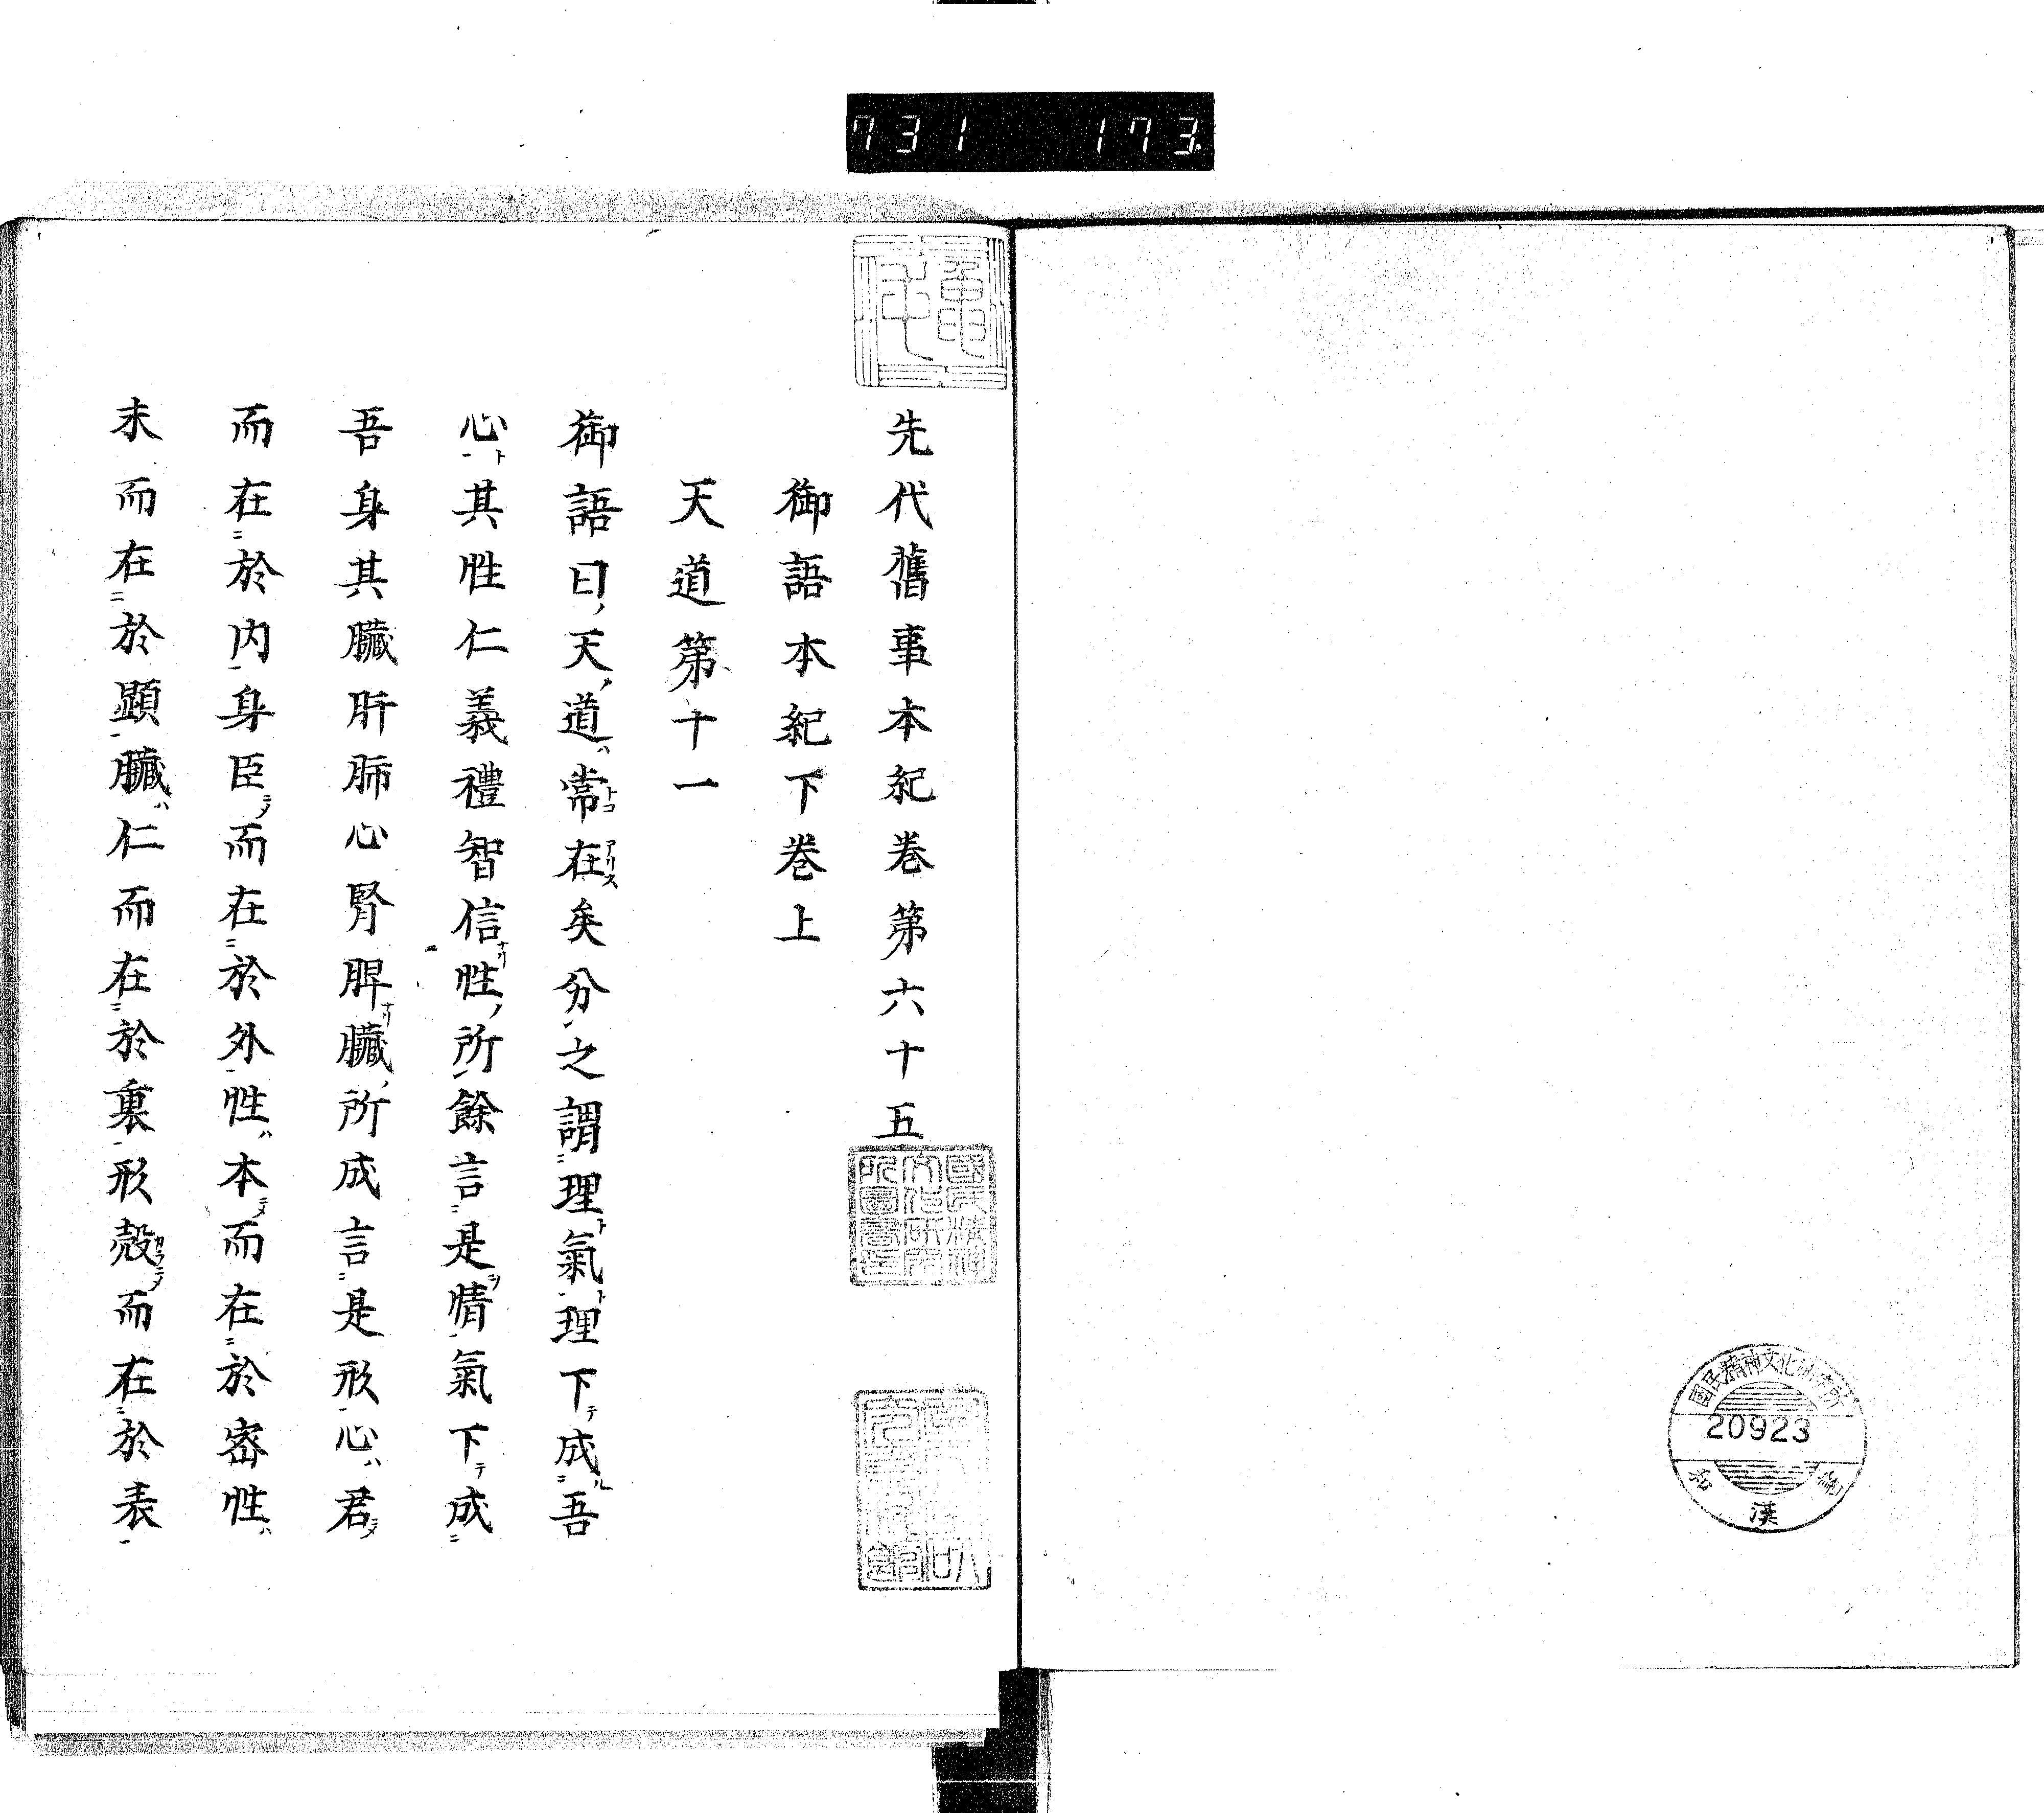 731 173
先代舊事本紀卷第六十五
御語本紀下巻上
天道第十一
御語曰天道常在矣分之謂理氣理下成吾
心其性仁義禮智信性所餘言是情氣下成
吾身其臓肝肺心腎脾臓所成言是形心君
而在於内身臣而在於外性本而在於密性
末而在於顕臓仁而在於裏形殻而在於表
国民精神文化研究所
20923
漢